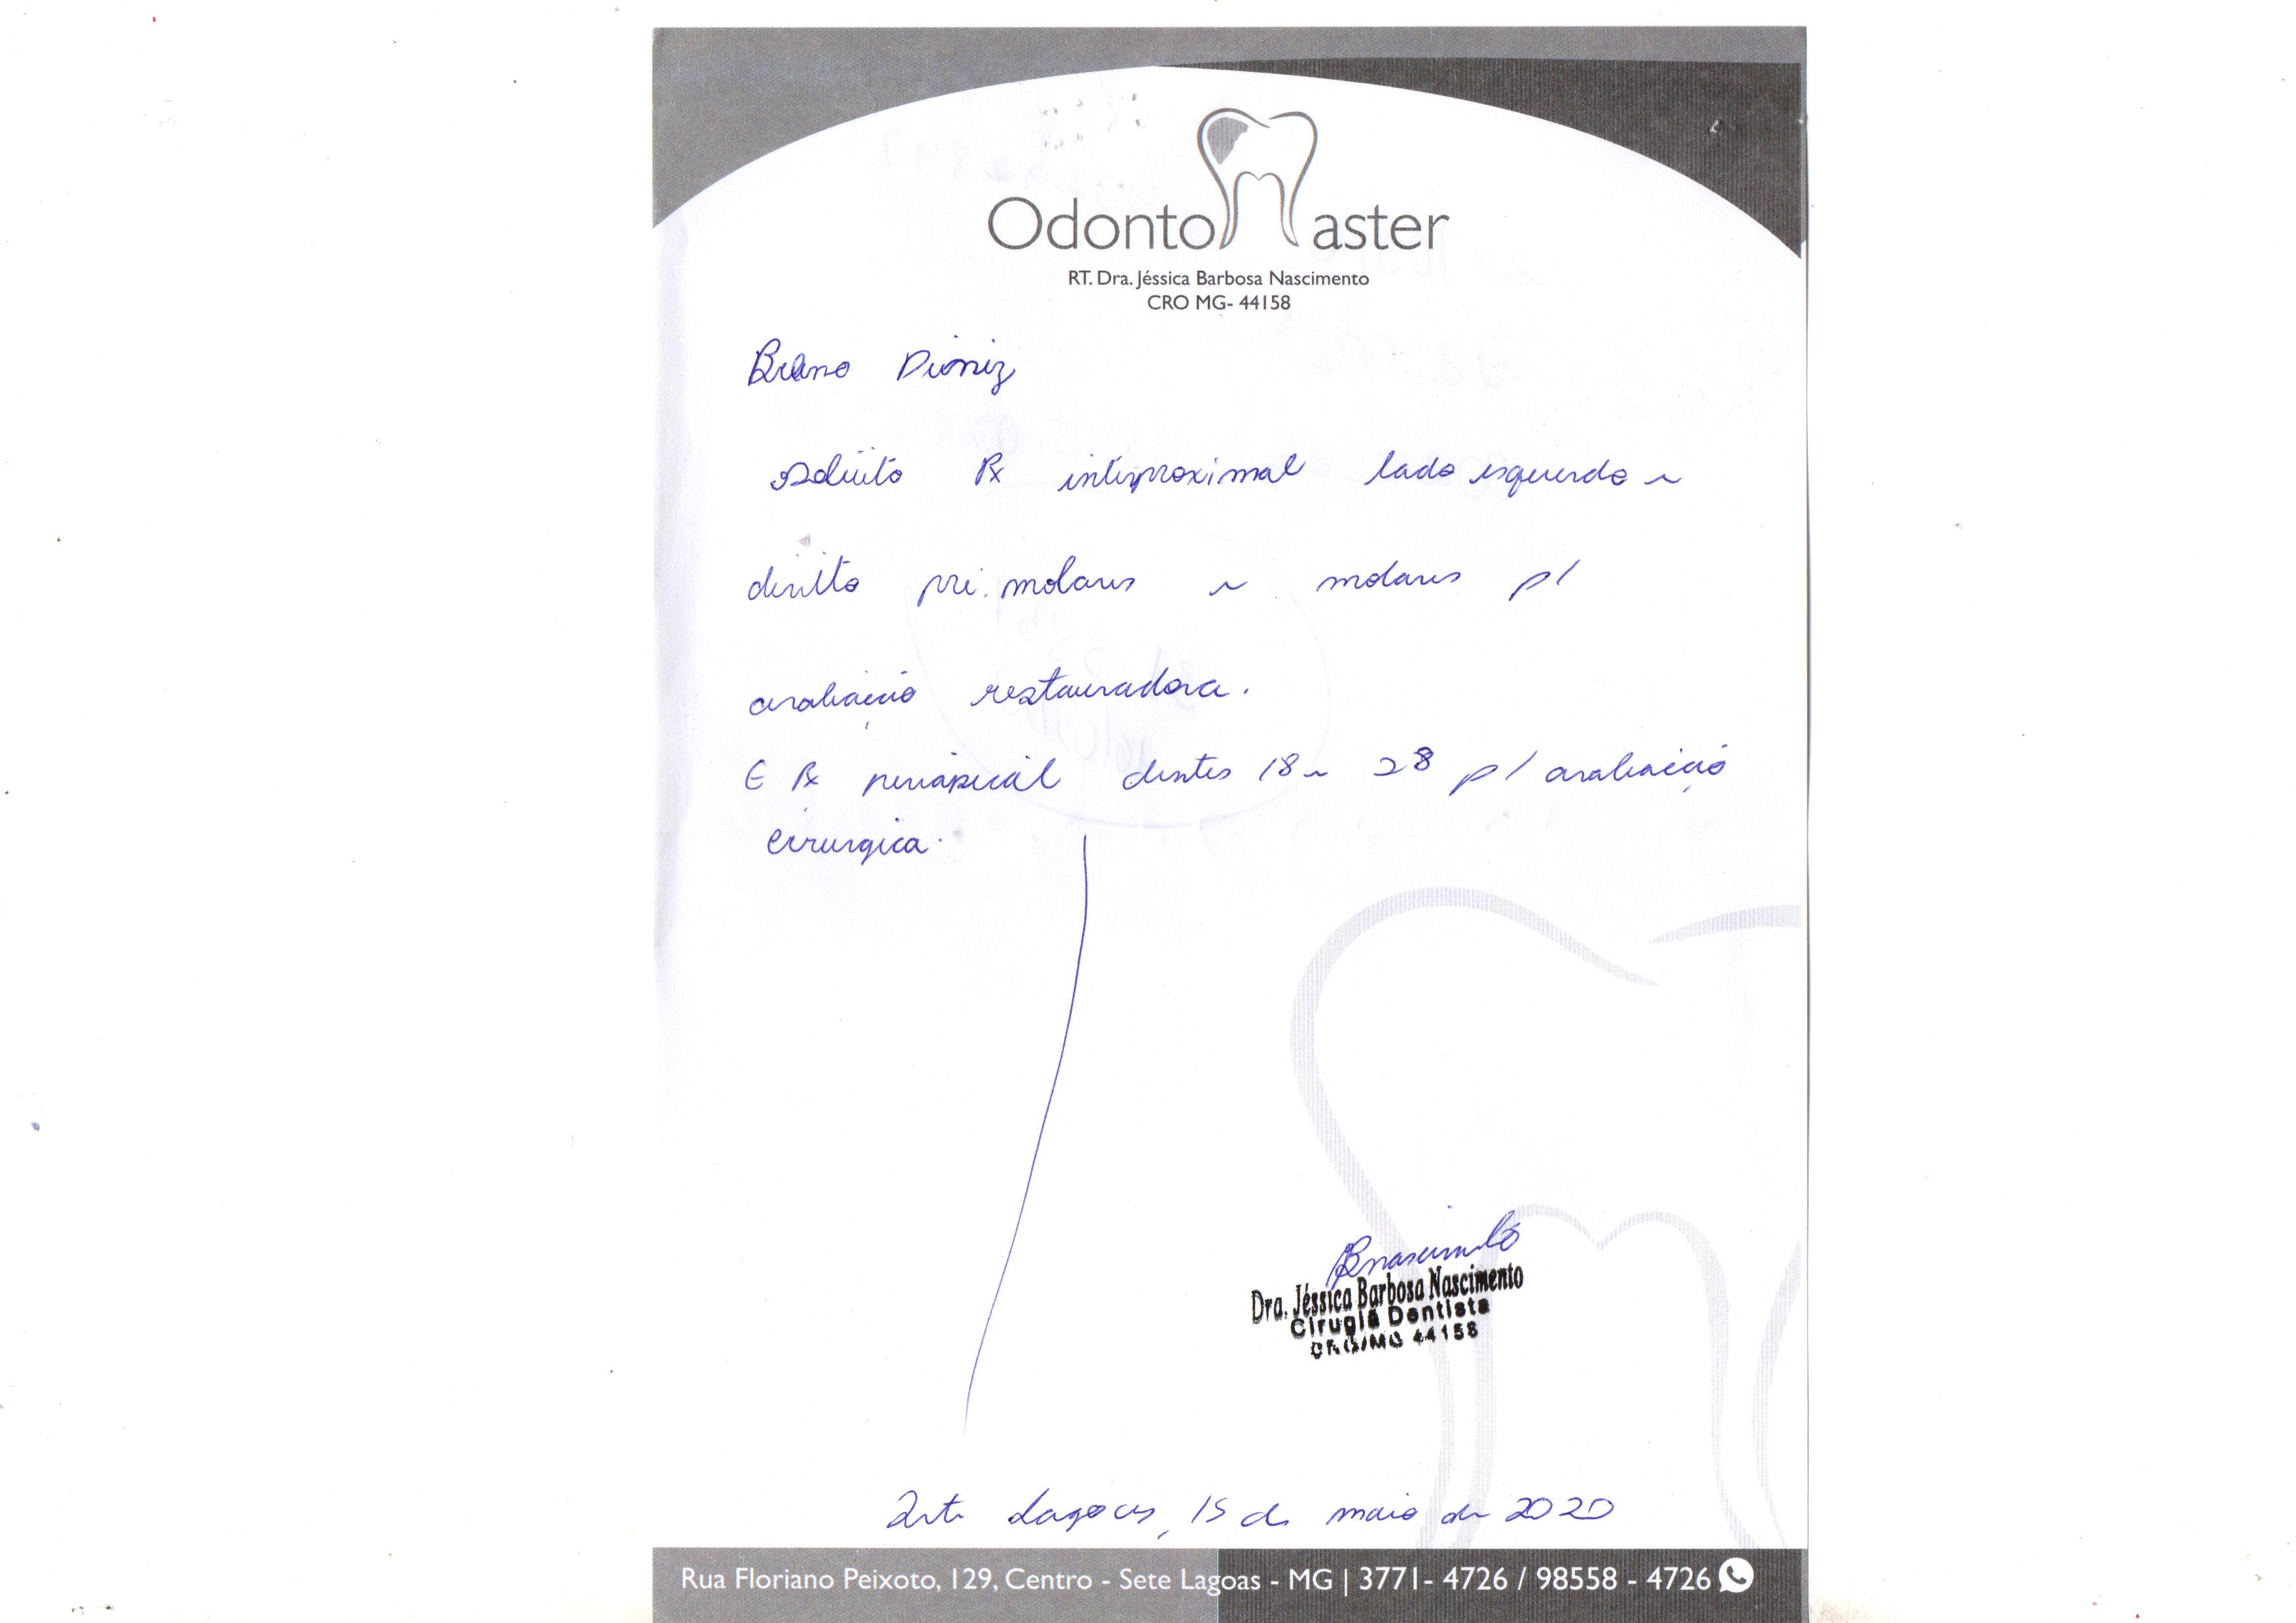 Odonto Master
RT. Dra. Jéssica Barbosa Nascimento
CRO MG- 44158
Bruno Dioniz
Solicito Rx interproximal lado esquerdo e
direito pré. molares e molares p/
avaliação restauradora.
E Rx periapical dentes 18 e 28 p/ avaliação
cirurgica.
BNascimento
Dra. Jéssica Barbosa Nascimento
Cirugiã Dentista
CRO/MG 44158
Sete Lagoas, 15 de maio de 2020
Rua Floriano Peixoto, 129, Centro - Sete Lagoas - MG | 3771- 4726 / 98558 - 4726